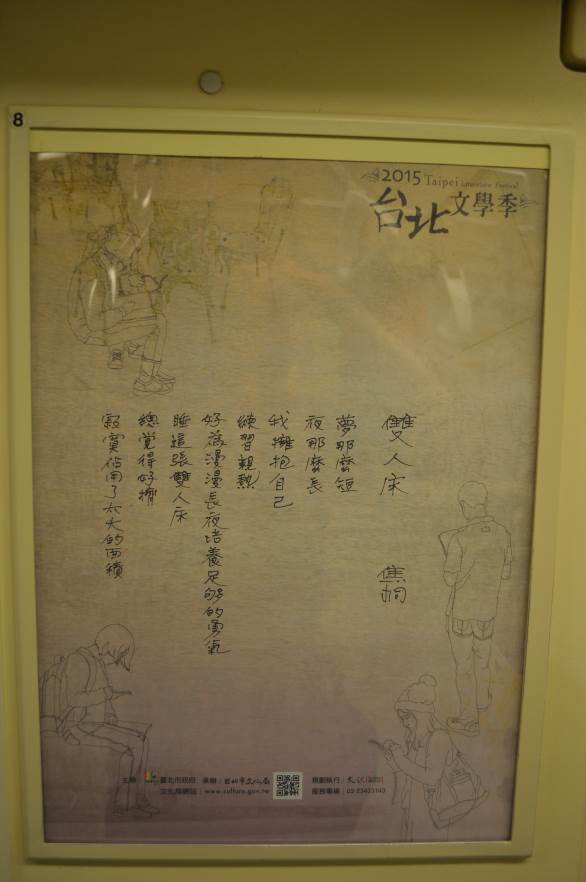 8
2015 Taipei Literature Festival
台北文學季
雙人床
焦桐
夢那麼短
夜那麼長
我擁抱自己
練習親熱
好為漫漫長夜培養足夠的勇氣
睡這張雙人床
總覺得好擠
寂寞佔用了太大的面積
主辦
臺北市政府
承辦
台北市文化局
文化局網站：www.culture.gov.tw
策劃執行
服務專線：02-23433143